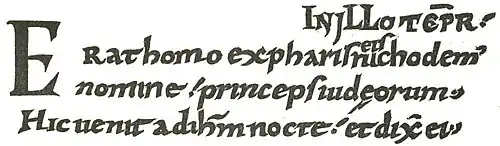 INJLLO TEP̄R·
ERat homo ex phariſeiſ nichodem᾽
nomine princepſ iudeorum
Hic uenit ad ih̄m nocte· et dix̄ ei